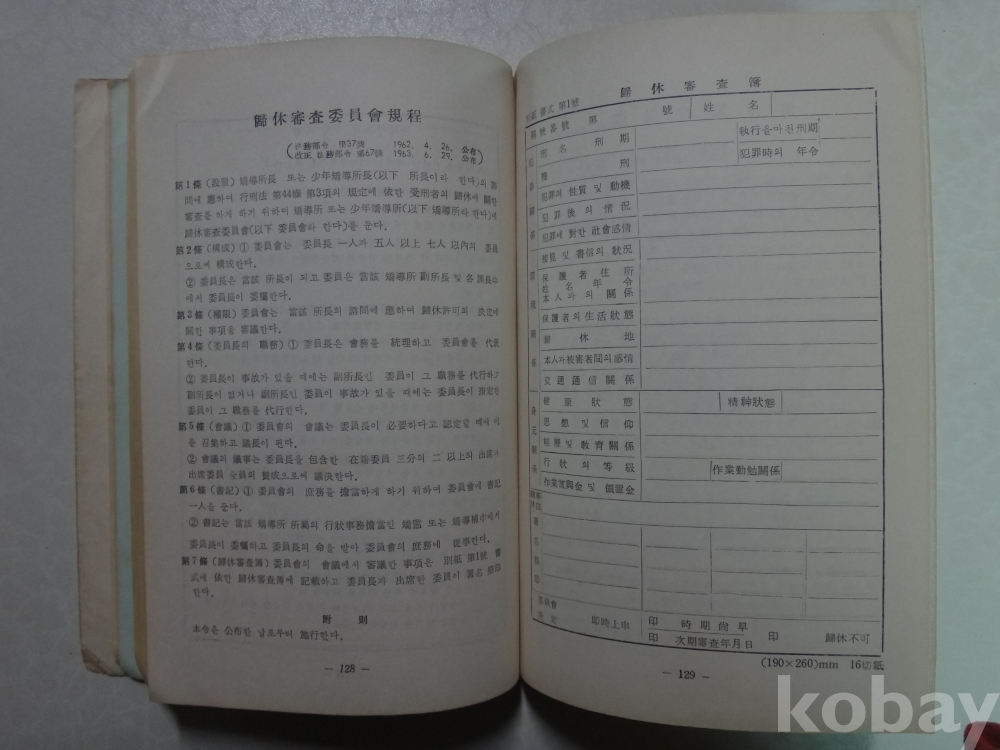 歸休審査委員會規程
法務部令 第37號 1962. 4. 26. 公布
改正 法務部令 第67號 1963. 6. 29. 公布
第1條 (設置) 矯導所長 또는 少年矯導所長(以下 所長이라 한다)의 諮
問에 應하여 行刑法 第44條 第3項의 規定에 依한 受刑者의 歸休에 關한
審査를 하게 하기 위하여 矯導所 또는 少年矯導所(以下 矯導所라 한다)에
歸休審査委員會(以下 委員會라 한다)를 둔다.
第2條 (構成) ① 委員會는 委員長 一人과 五人 以上 七人 以內의 委員
으로써 構成한다.
② 委員長은 當該 所長이 되고 委員은 當該 矯導所 副所長 및 各 課長中
에서 委員長이 委囑한다.
第3條 (權限) 委員會는 當該 所長의 諮問에 應하여 歸休許可의 決定에
關한 事項을 審議한다.
第4條 (委員長의 職務) ① 委員長은 會務를 統理하고 委員會를 代表
한다.
② 委員長이 事故가 있을 때에는 副所長인 委員이 그 職務를 代行하고
副所長이 없거나 副所長인 委員이 事故가 있을 때에는 委員長이 指定한
委員이 그 職務를 代行한다.
第5條 (會議) ① 委員會의 會議는 委員長이 必要하다고 認定할 때에 이
를 召集하고 議長이 된다.
② 會議의 議事는 委員長을 包含한 在籍委員 三分의 二 以上의 出席과
出席委員 全員의 贊成으로써 議決한다.
第6條 (書記) ① 委員會의 庶務를 擔當하게 하기 위하여 委員會에 書記
一人을 둔다.
② 書記는 當該 矯導所 所屬의 行狀事務擔當인 矯監 또는 矯導補中에서
委員長이 委囑하고 委員長의 命을 받아 委員會의 庶務에 從事한다.
第7條 (歸休審査簿) 委員會의 會議에서 審議한 事項은 別紙 第1號 書
式에 依한 歸休審査簿에 記載하고 委員長과 出席한 委員이 署名 捺印
한다.
附則
本令은 公布한 날로부터 施行한다.
— 128 —
歸休審査簿
別紙 書式 第1號
番號 第 號 姓名
刑名 刑期 執行을 마친 刑期
刑 犯罪時의 年令
犯罪의 性質 및 動機
犯罪後의 情況
犯罪에 對한 社會感情
接見 및 書信의 狀況
保護者 住所
姓名 年令
本人과의 關係
保護者의 生活狀態
歸休地
本人과 被害者間의 感情
交通通信關係
健康狀態 精神狀態
思想 및 信仰
經歷 및 敎育關係
行狀의 等級 作業勤勉關係
作業賞與金 및 領置金
委員會
決定 卽時上申 印 時期尙早
印 次期審査年月日 印 歸休不可
(190×260)mm 16切紙
— 129 —
kobay